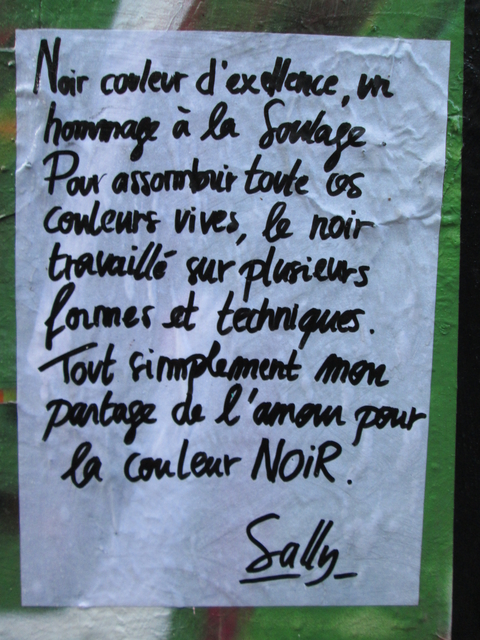 Noir couleur d'exellence, un
hommage à la Soulage
Pour assombrir toute ces
couleurs vives, le noir
travaillé sur plusieurs
formes et techniques.
Tout simplement mon
partage de l'amour pour
la couleur NOiR.
Sally